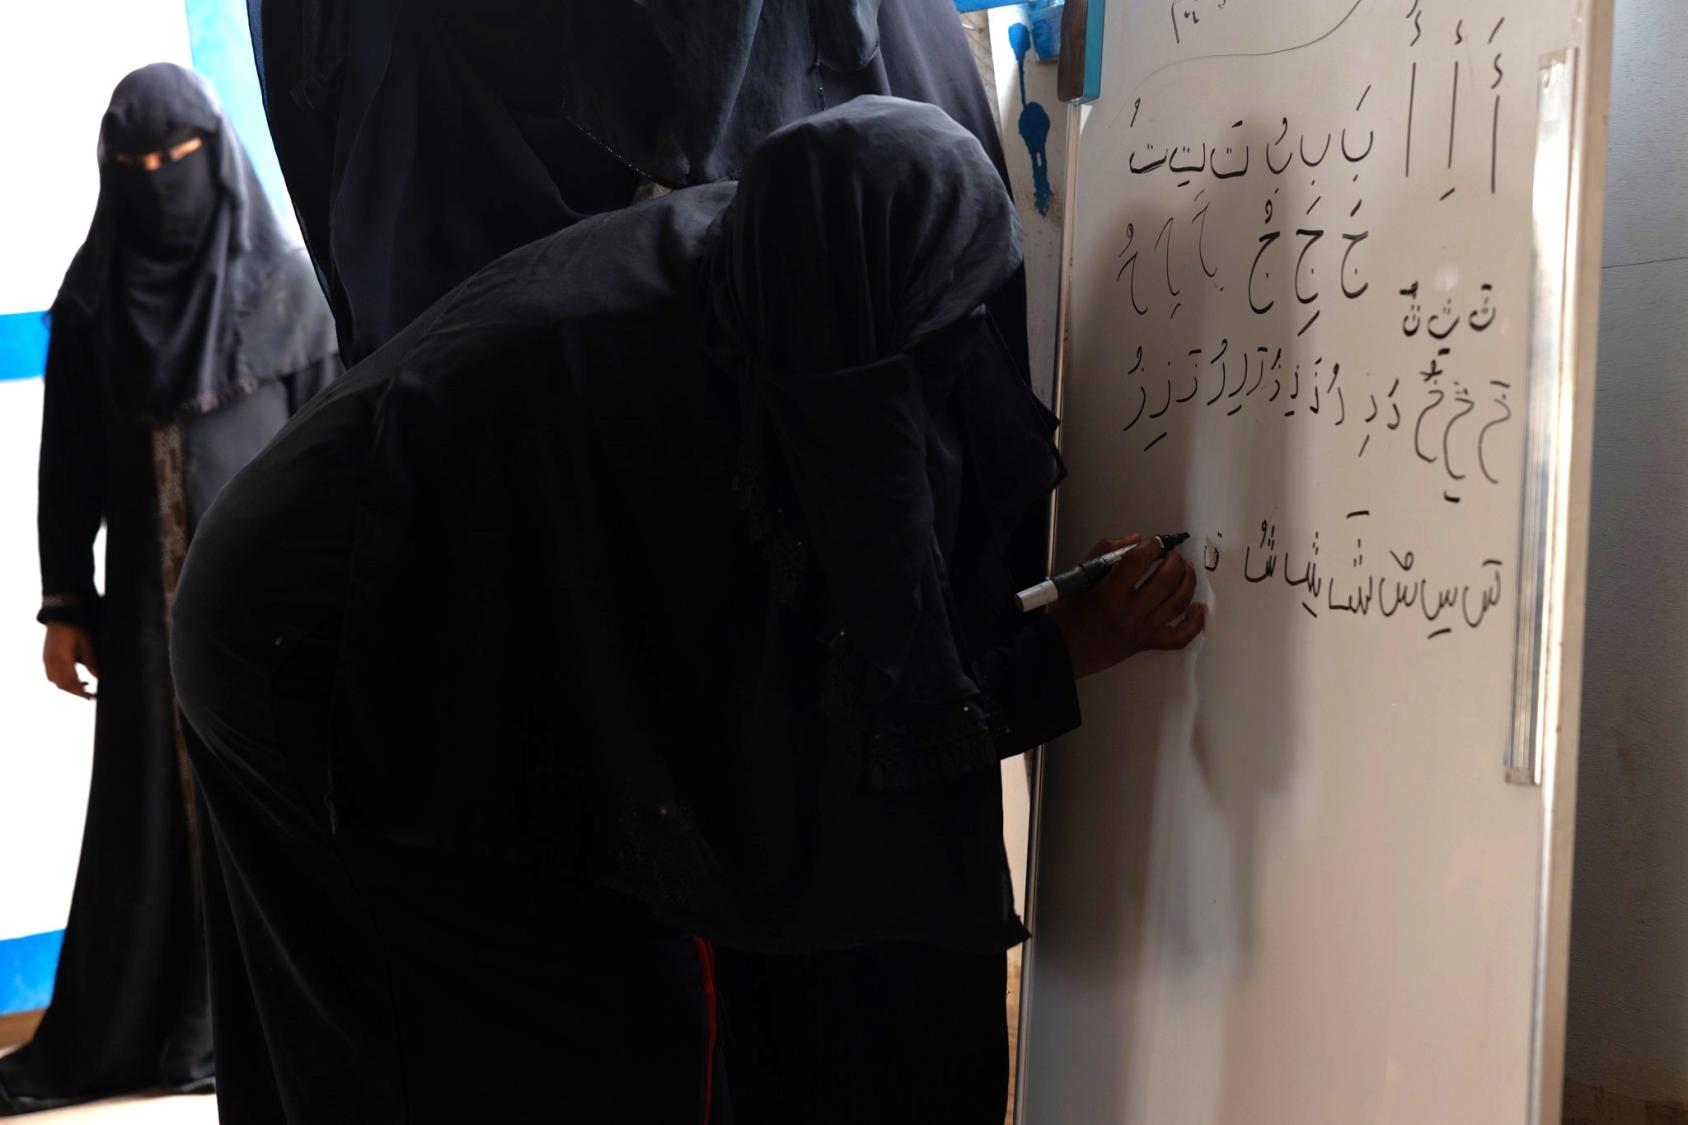 أَ أِ أُ
بَ بِ بُ تَ تِ تُ
جَ جِ جُ حَ حِ حُ
ثَ ثِ ثُ
خَ خِ خُ دَ دِ دُ ذَ ذِ ذُ رَ رِ رُ زَ زِ زُ
سَ سِ سُ شَ شِ شُ